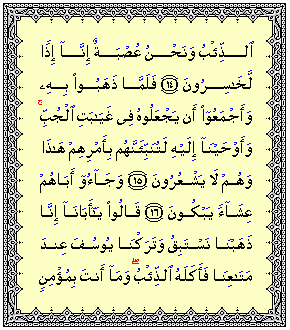 ٱلذِّئْبُ وَنَحْنُ عُصْبَةٌ إِنَّآ إِذًا
لَّخَـٰسِرُونَ ١٤ فَلَمَّا ذَهَبُوا۟ بِهِۦ
وَأَجْمَعُوٓا۟ أَن يَجْعَلُوهُ فِى غَيَـٰبَتِ ٱلْجُبِّ ۚ
وَأَوْحَيْنَآ إِلَيْهِ لَتُنَبِّئَنَّهُم بِأَمْرِهِمْ هَـٰذَا
وَهُمْ لَا يَشْعُرُونَ ١٥ وَجَآءُوٓ أَبَاهُمْ
عِشَآءً يَبْكُونَ ١٦ قَالُوا۟ يَـٰٓأَبَانَآ إِنَّا
ذَهَبْنَا نَسْتَبِقُ وَتَرَكْنَا يُوسُفَ عِندَ
مَتَـٰعِنَا فَأَكَلَهُ ٱلذِّئْبُ ۖ وَمَآ أَنتَ بِمُؤْمِنٍ